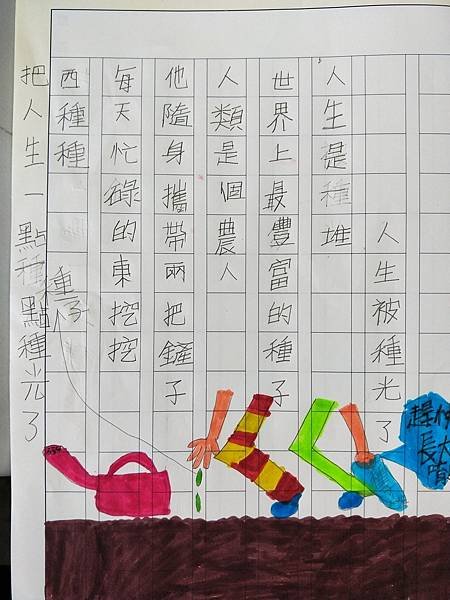 人生被種光了
人生是種堆
世界上最豐富的種子
人類是個農人
他隨身攜帶兩把鏟子
每天忙碌的東挖挖
西種種
把人生一點種點種光了
種子
趕
長大